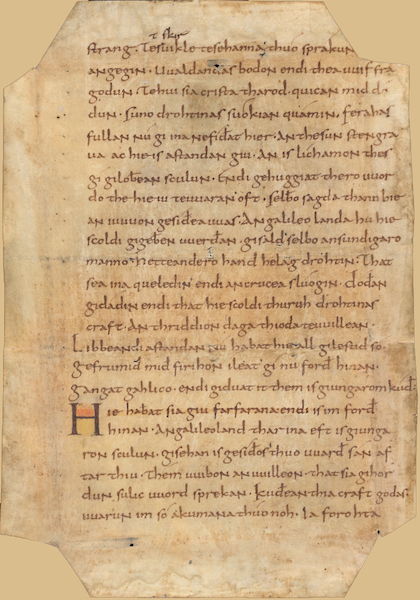 t skir
strang. Te suikle te sehanna; thuo sprakun
angegin. Uualdandas bodon endi thea uuif fra
godun. Te hui sia crista tharod. quican mid d
dun. suno drohtinas suokian quamin. ferahas
fullan nu gi ina ne fiđat hier. An thesun stengra
ua ac hie is astandan giu. An is lichamon thes
gi gilobean sculun. Endi gehuggiat thero uuor
do the hie iu te uuaran oft. selbo sagda thann hie
an iuuuon gesiđea uuas. An galileo landa hu hie
scoldi gigeban uuerđan. gisald selbo an sundigaro
manno. hetteandero hand helag drohtin. That
sea ina queledin endi an crucea sluogin. dođan
gidadin endi that hie scoldi thuruh drohtinas
craft. An thriddion daga thioda te uuillean.
Libbeandi astandan nu habat hie all gilestid so
gefrumid mid firihon ileat gi nu forđ hinan.
gangat gahlico. endi giduat it them is giungarom kuđ.
Hie habat sia giu farfarana endi is im forđ
hinan. An galileo land thar ina eft is giunga
ron sculun. gisehan is gesiđos thuo uuarđ san af
tar thiu. Them uuibon an uuilleon. that sia gihor
dun sulic uuord sprekan. Kuđean thia craft godas
uuarun im so akumana thuo noh. Ia forohta